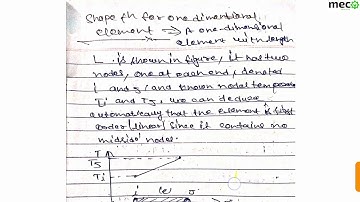 mec
Shape fn for one dimentional
element → A one-dimensional
element with length
L. is shown in figure, it has two
nodes, one at each end, denoted
i and s, and known nodal tempera
Ti and Ts, we can deduce
automatically that the element is first
order (linear) since it contains no
midside nodes.
T
Ts
Ti
i (e)